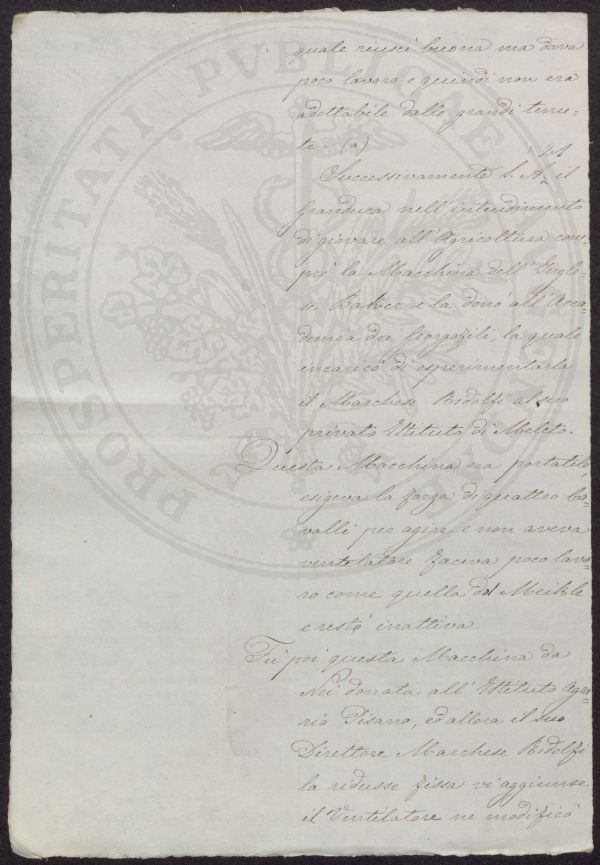 quale riuscì buona ma dava
poco lavoro e quindi non era
adottabile dalle grandi tenu=
te. (a)
Successivamente S. A. il
Granduca nell'intendimento
di giovare all'Agricoltura com=
prò la Macchina dell'Ingle=
se Baker e la donò all'Acca=
demia dei Georgofili, la quale
incaricò di esperimentarla
il Marchese Ridolfi al suo
privato Istituto di Meleto.
Questa Macchina era portatile
esigeva la forza di quattro Ca=
valli per agire e non aveva
ventilatore faceva poco lavo=
ro come quella del Meikle
e restò inattiva.
Fu poi questa Macchina da
Noi donata all'Istituto Agra=
rio Pisano, ed allora il suo
Direttore Marchese Ridolfi
la ridusse fissa vi aggiunse
il Ventilatore ne modificò
PROSPERITATI PVBLICAE